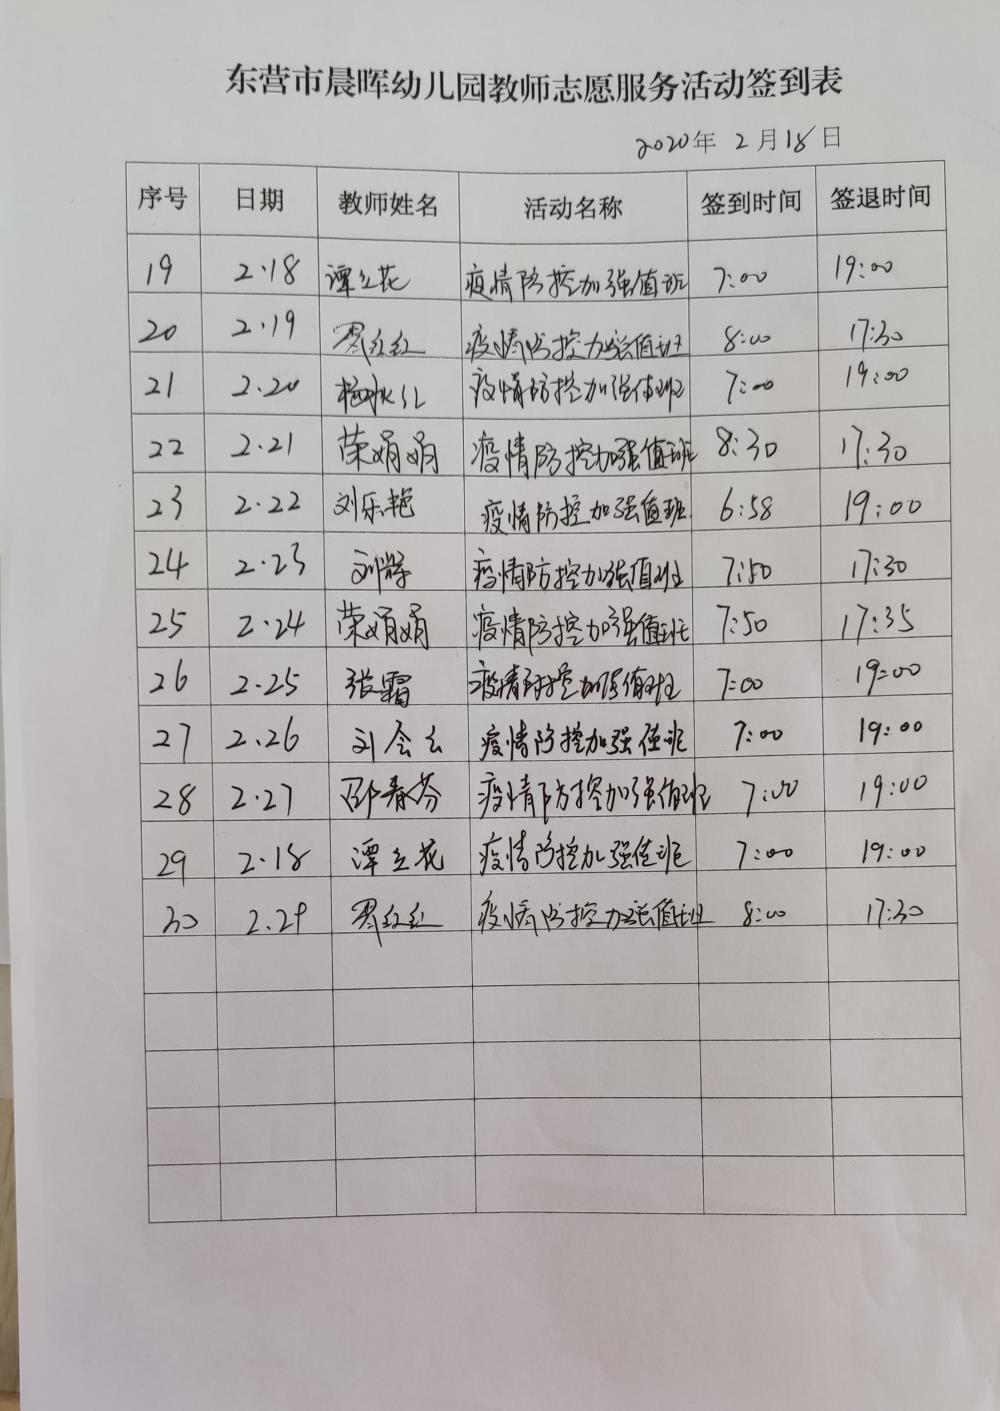 东营市晨晖幼儿园教师志愿服务活动签到表
2020年 2月18日
序号 日期 教师姓名 活动名称 签到时间 签退时间
19 2.18 谭立花 疫情防控加强值班 7:00 19:00
20 2.19 红红 疫情防控加强值班 8:00 17:30
21 2.20 疫情防控加强值班 7:00 19:00
22 2.21 荣娟娟 疫情防控加强值班 8:30 17:30
23 2.22 刘乐艳 疫情防控加强值班 6:58 19:00
24 2.23 刘 疫情防控加强值班 7:50 17:30
25 2.24 荣娟娟 疫情防控加强值班 7:50 17:35
26 2.25 张霜 疫情防控加强值班 7:00 19:00
27 2.26 刘会云 疫情防控加强值班 7:00 19:00
28 2.27 邵春芬 疫情防控加强值班 7:00 19:00
29 2.18 谭立花 疫情防控加强值班 7:00 19:00
30 2.29 红红 疫情防控加强值班 8:00 17:30